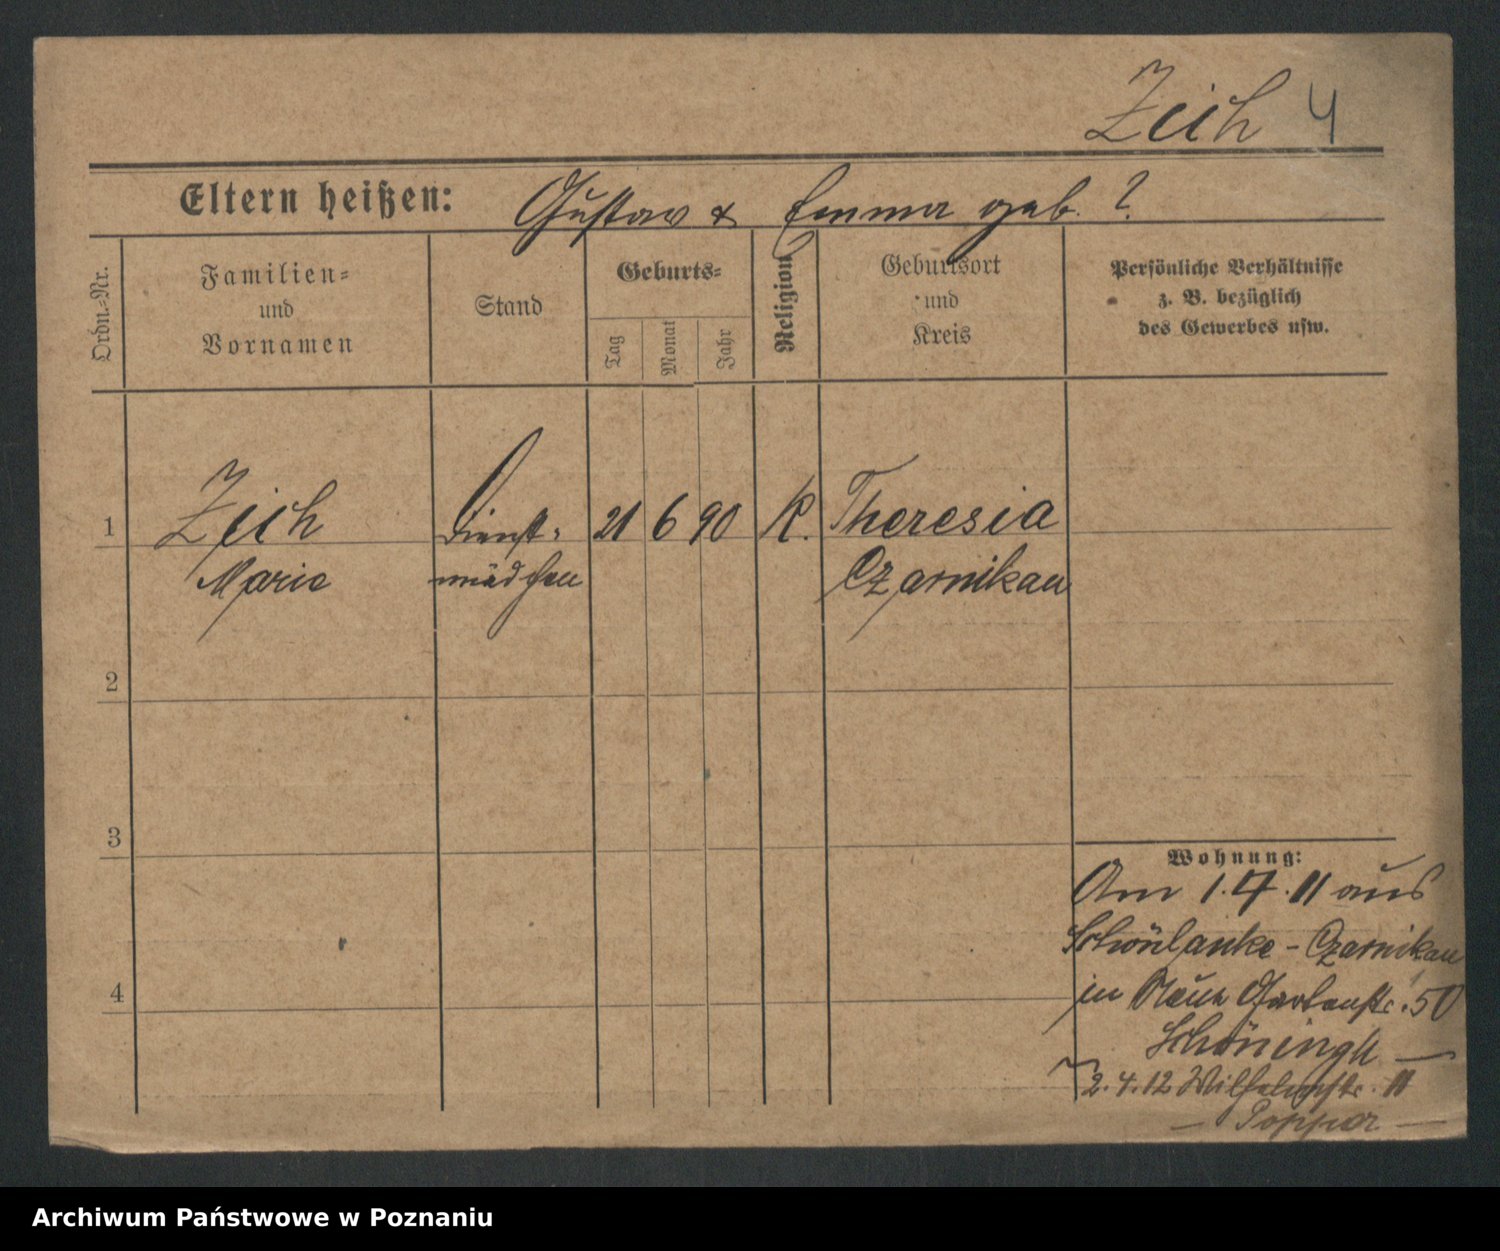 Zeih 4
Eltern heißen: Gustav & Emma geb. ?
Ordn.-Nr.
Familien-
und
Vornamen
Stand
Geburts-
Tag
Monat
Jahr
Religion
Geburtsort
und
Kreis
Persönliche Verhältnisse
z. B. bezüglich
des Gewerbes usw.
1 Zeih Dienst- 21 6 90 K. Theresia
Marie mädchen Czarnikau
2
3
Wohnung:
Am 1.7.11 aus
Schönlanke - Czarnikau
4
in Neue Gartenstr. 50
Schöningh
2.4.12 Wilhelmstr. 11
Popper
Archiwum Państwowe w Poznaniu